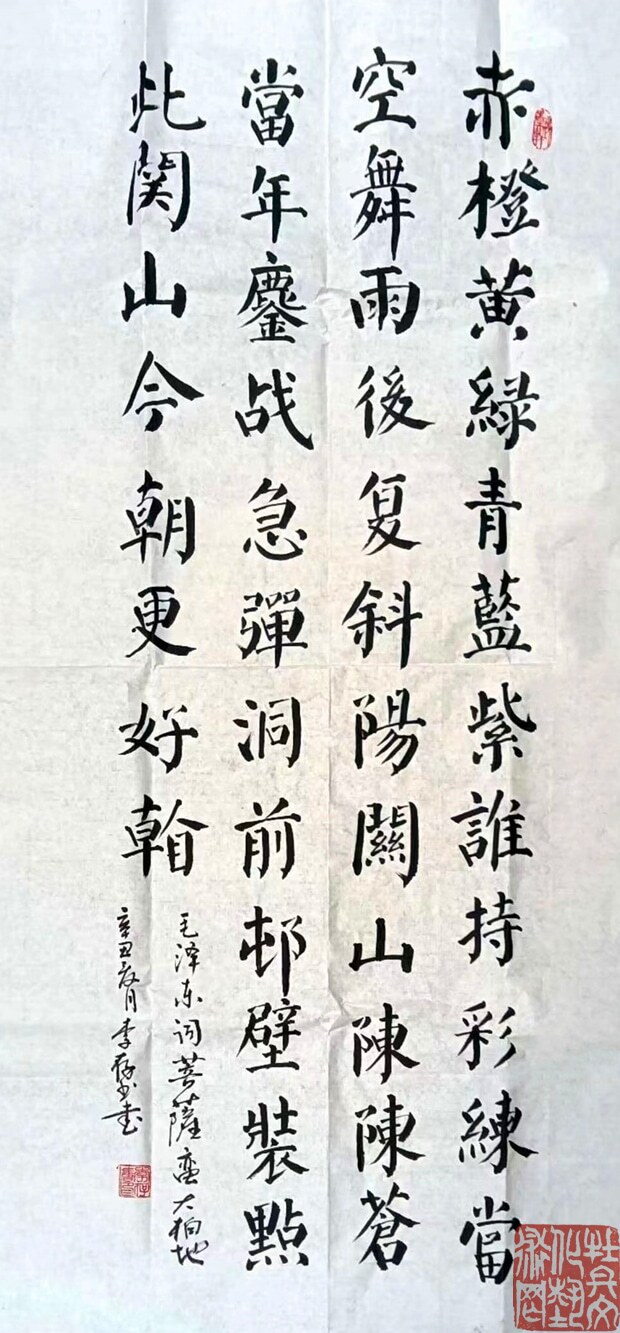 赤橙黄緑青藍紫誰持彩練當
空舞雨後复斜陽關山陳陳蒼
當年鏖战急彈洞前邨壁裝點
此関山今朝更好看
毛泽东词菩薩蛮大柏地
辛丑夏月李存书